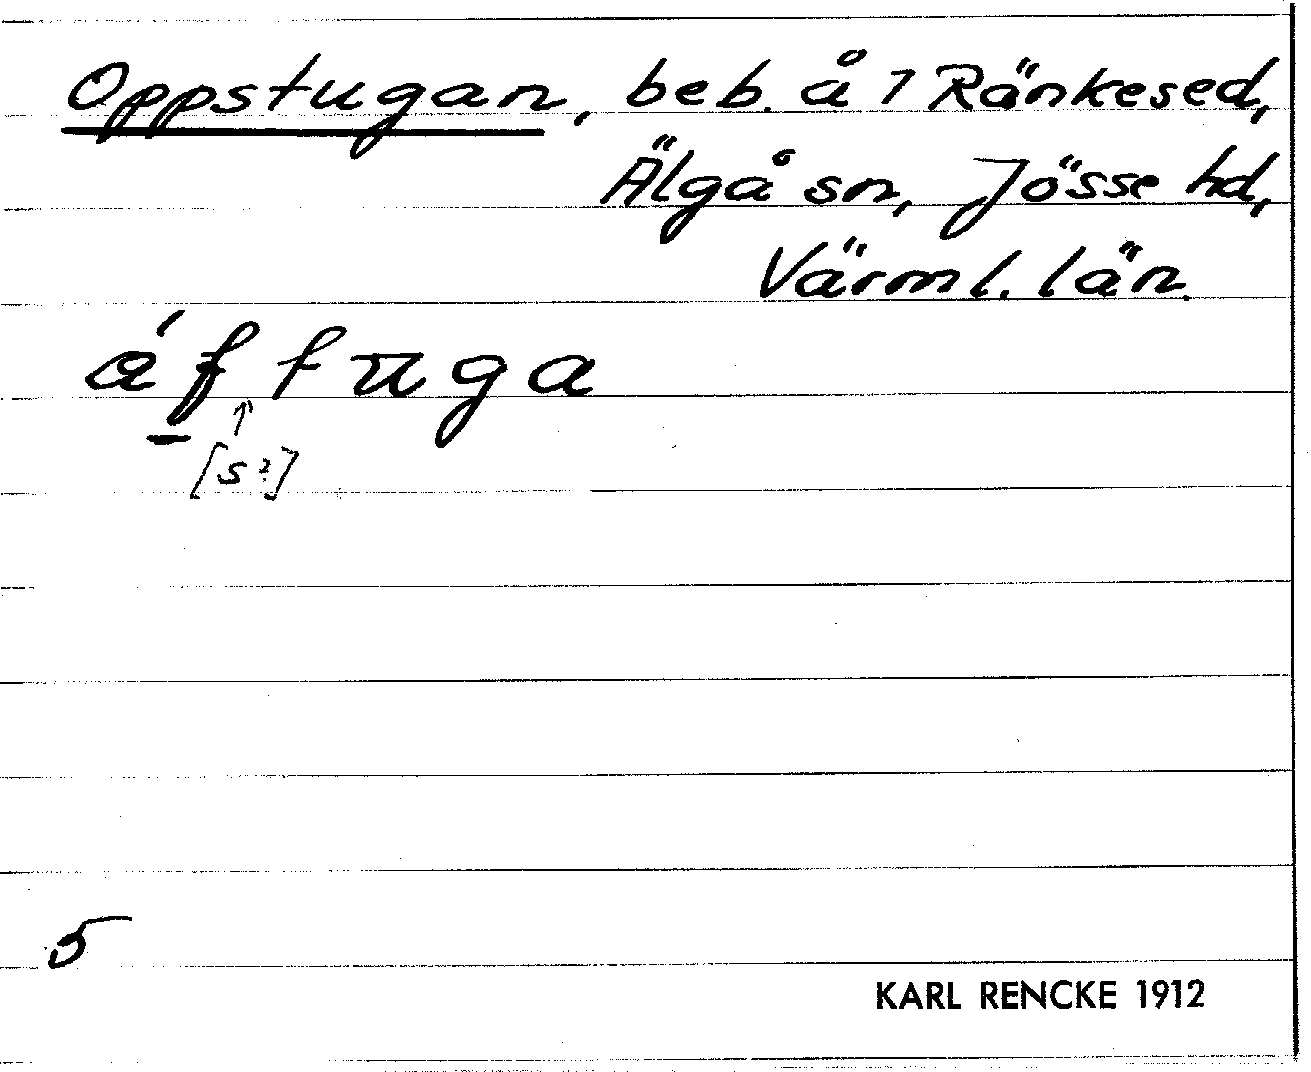 Oppstugan, beb. å 1 Ränkesed,
Älgå sn, Jösse hd,
Värml. län.
áffuga
↑
[s?]
5
KARL RENCKE 1912